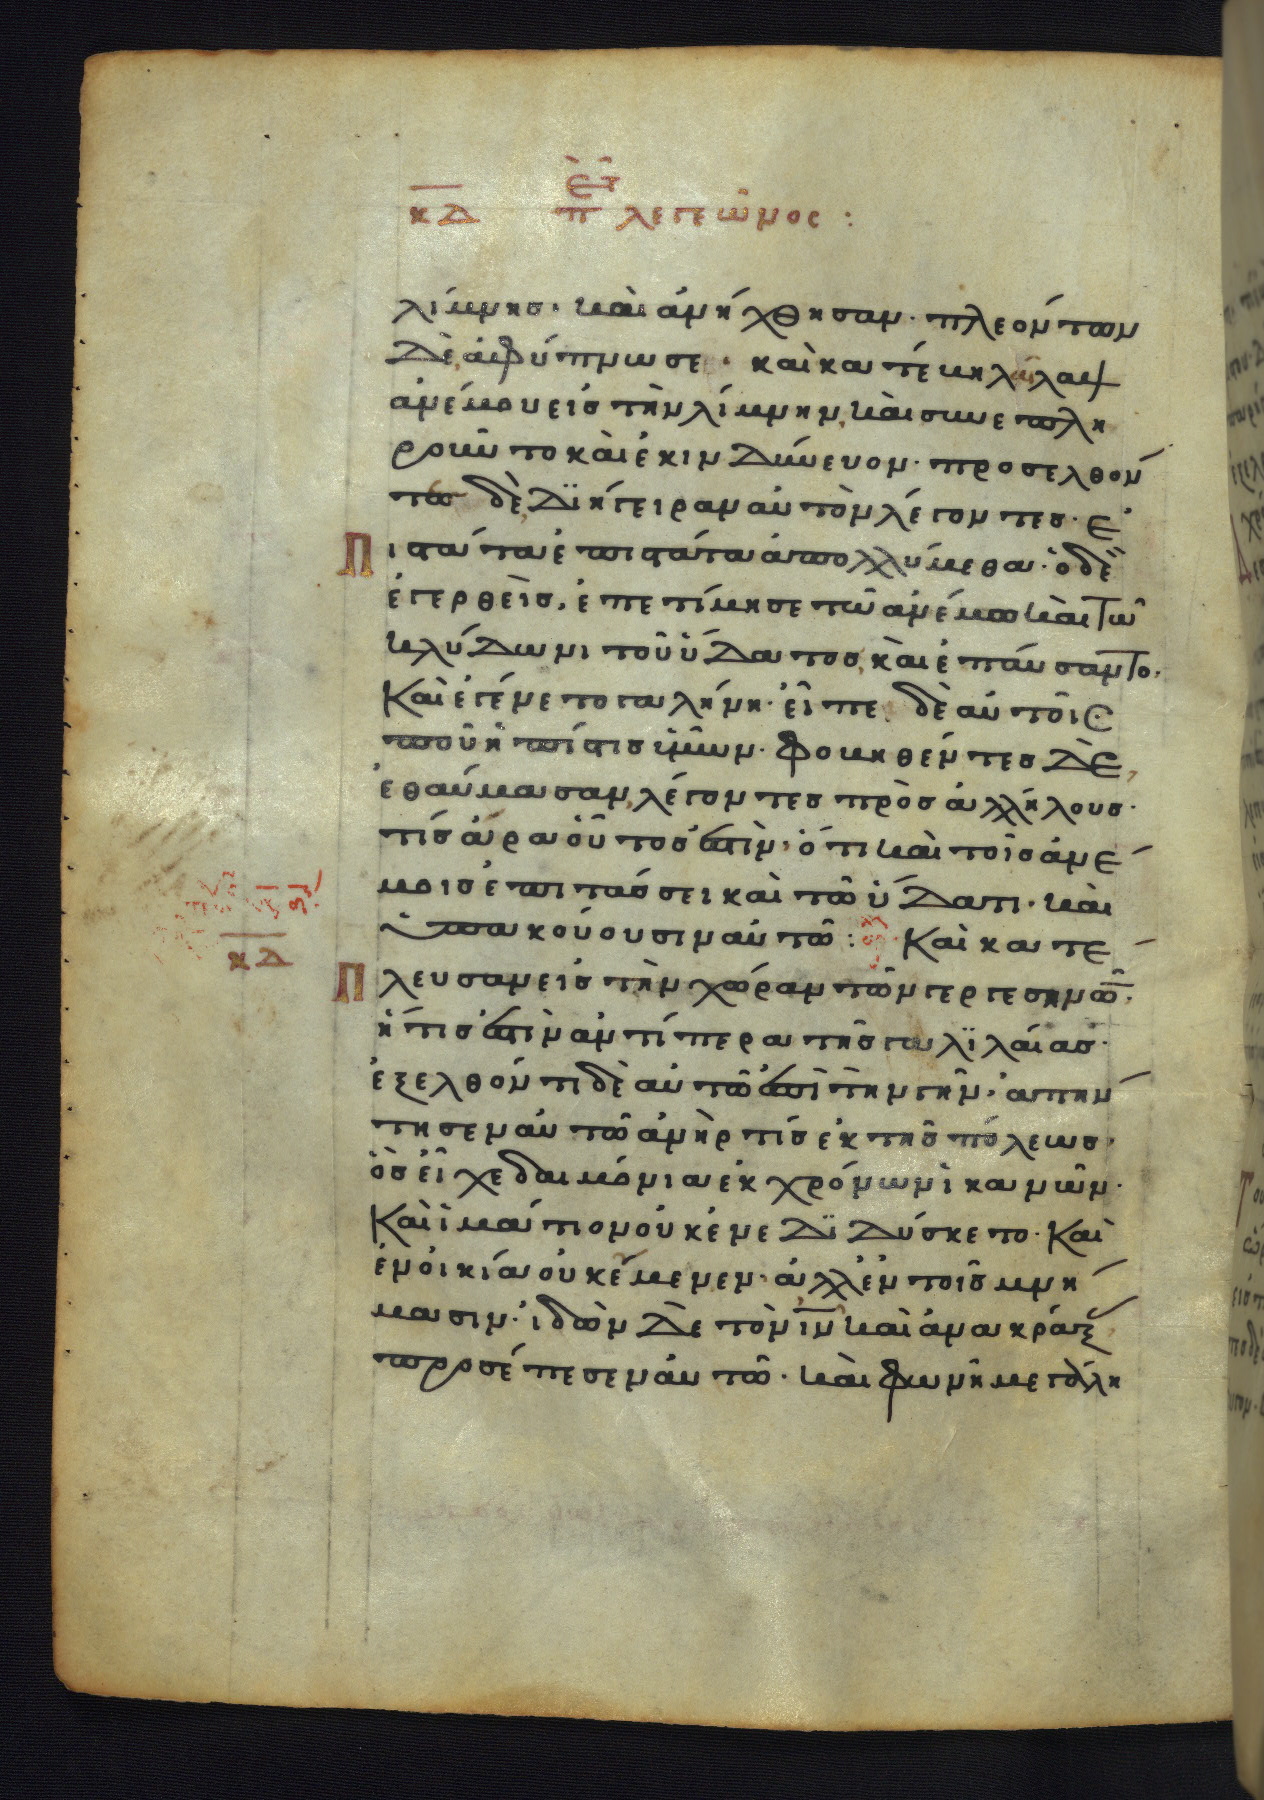 κδ περι λεγεῶνος:
λίμνης· καὶ ἀνήχθησαν· πλεόντων
δὲ ἀφύπνωσε· καὶ κατέβη λαῖλαψ
ἀνέμου εἰς τὴν λίμνην, καὶ συνεπλη
ροῦντο καὶ ἐκινδύνευον· προσελθόν
τες δὲ διήγειραν αὐτὸν λέγοντες· ἐ
πιστάτα ἐπιστάτα ἀπολλύμεθα· ὁ δὲ
ἐγερθεὶς, ἐπετίμησε τῶ ἀνέμω καὶ τῶ
κλύδωνι τοῦ ὕδατος, καὶ ἐπαύσαντο·
Καὶ ἐγένετο γαλήνη· εἶπε δὲ αὐτοῖς·
ποῦ ἡ πίστις ὑμῶν· φοβηθέντες δὲ,
ἐθαύμασαν, λέγοντες πρὸς ἀλλήλους·
τίς ἄρα οὗτός ἐστὶν· ὅτι καὶ τοῖς ἀνέ
μοις ἐπιτάσσει καὶ τῶ ὕδατι· καὶ
ὑπακούουσιν αὐτῶ: Καὶ κατέ
κδ
πλευσαν εἰς τὴν χώραν τῶν γεργεσηνῶν·
ἥτις ἐστὶν ἀντίπερα τῆς γαλϊλαίας·
ἐξελθόντι δὲ αὐτῶ ἐπὶ τὴν γῆν· ἀπήν
τησεν αὐτῶ ἀνήρ τίς ἐκ τῆς πόλεως·
ὃς εἶχε δαιμόνια ἐκ χρόνων ἱκανῶν·
Καὶ ἱμάτιον οὐκ ἐνεδϊδύσκετο· Καὶ
ἐν οἰκία οὐκ ἔμενεν· ἀλλ' ἐν τοῖς μνή
μασιν· ἰδὼν δὲ τὸν ιν καὶ ἀνακράξ
προσέπεσεν αὐτῶ· καὶ φωνῆ μεγάλη